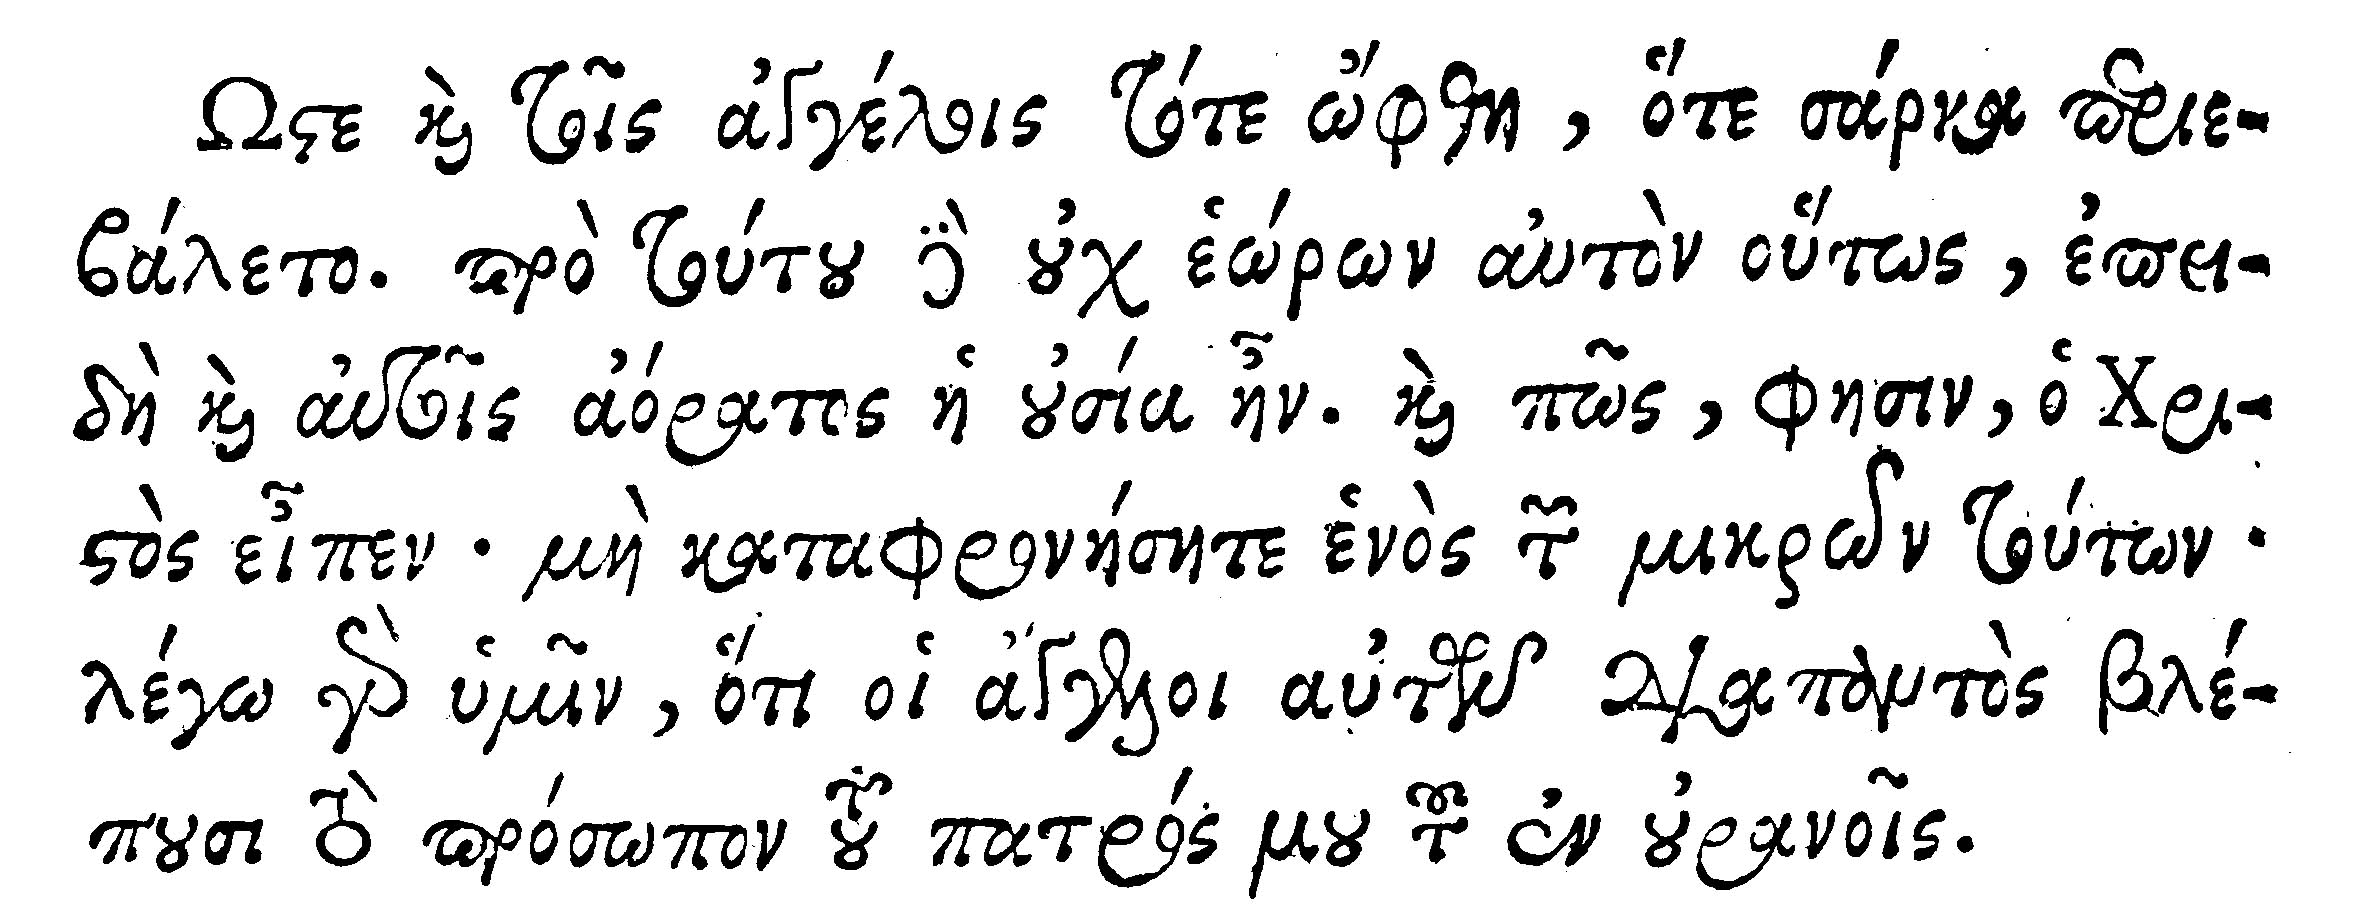 Ὥστε καὶ τοῖς ἀγγέλοις τότε ὤφθη, ὅτε σάρκα περιε-
βάλετο. πρὸ τούτου δὲ οὐχ ἑώρων αὐτὸν οὕτως, ἐπει-
δὴ καὶ αὐτοῖς ἀόρατος ἡ οὐσία ἦν. καὶ πῶς, φησιν, ὁ Χρι-
στὸς εἶπεν· μὴ καταφρονήσητε ἑνὸς τῶν μικρῶν τούτων·
λέγω γὰρ ὑμῖν, ὅτι οἱ ἄγγελοι αὐτῶν διαπαντὸς βλέ-
πουσι τὸ πρόσωπον τοῦ πατρός μου τοῦ ἐν οὐρανοῖς.